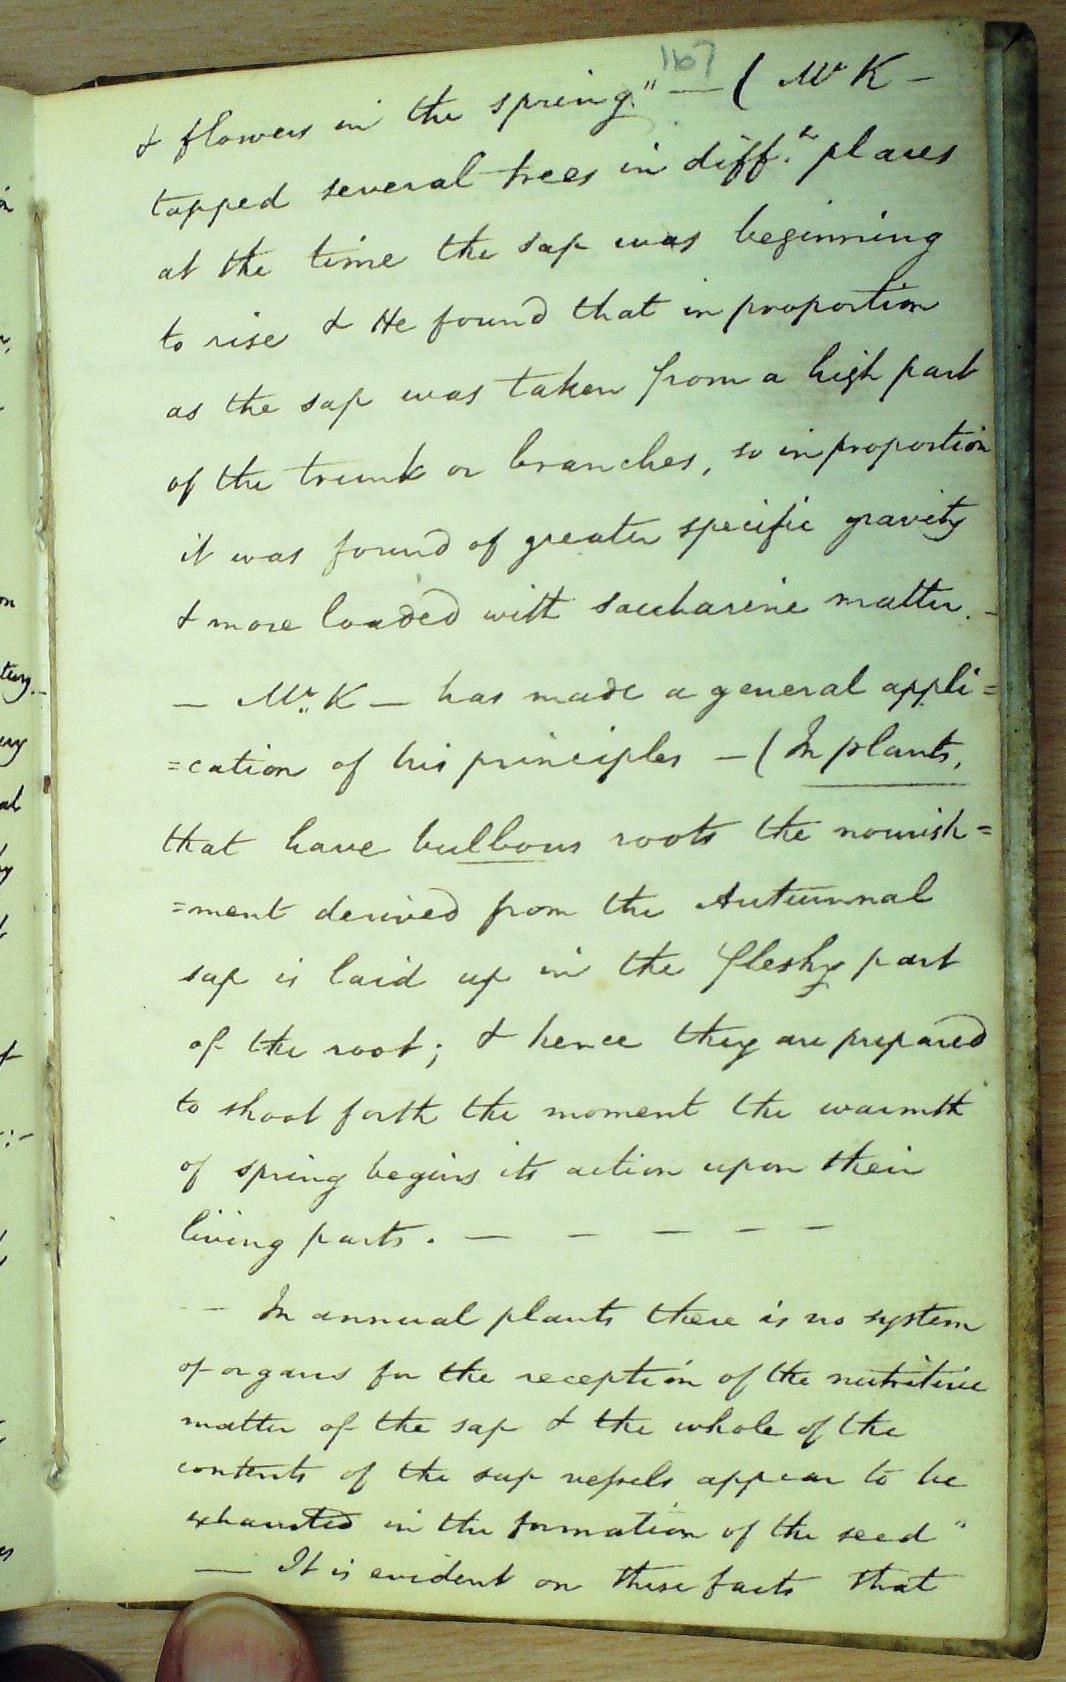 167
& flowers in the spring." — ( Mr K —
tapped several trees in diff.t places
at the time the sap was beginning
to rise & He found that in proportion
as the sap was taken from a high part
of the trunk or branches, so in proportion
it was found of greater specific gravity
& more loaded with saccharine matter. —
— Mr. K — has made a general appli=
=cation of his principles — ( In plants,
that have bulbous roots the nourish=
=ment derived from the Autumnal
sap is laid up in the fleshy part
of the root; & hence they are prepared
to shoot forth the moment the warmth
of spring begins its action upon their
living parts. — — — — —
— In annual plants there is no system
of organs for the reception of the nutritive
matter of the sap & the whole of the
contents of the sap vessels appear to be
exhausted in the formation of the seed "
— It is evident on these facts that